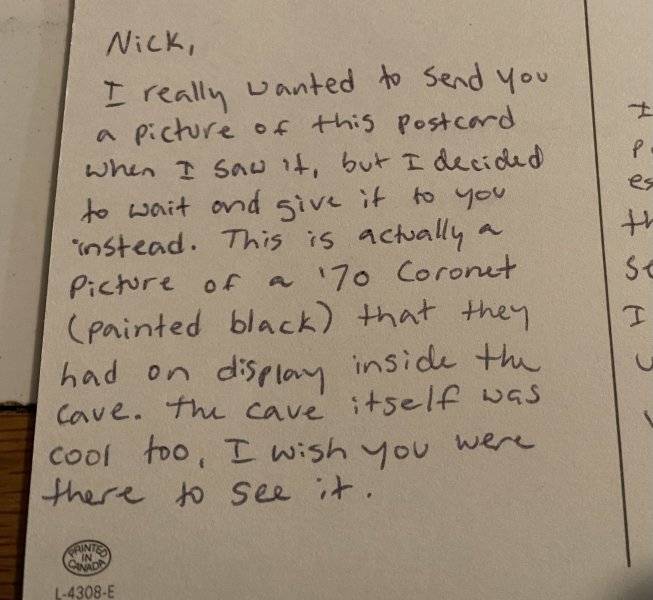 Nick,
I really wanted to send you
a picture of this postcard
when I saw it, but I decided
to wait and give it to you
instead. This is actually a
picture of a '70 Coronet
(painted black) that they
had on display inside the
cave. The cave itself was
cool too, I wish you were
there to see it.
PRINTED
IN
CANADA
L-4308-E
I
I